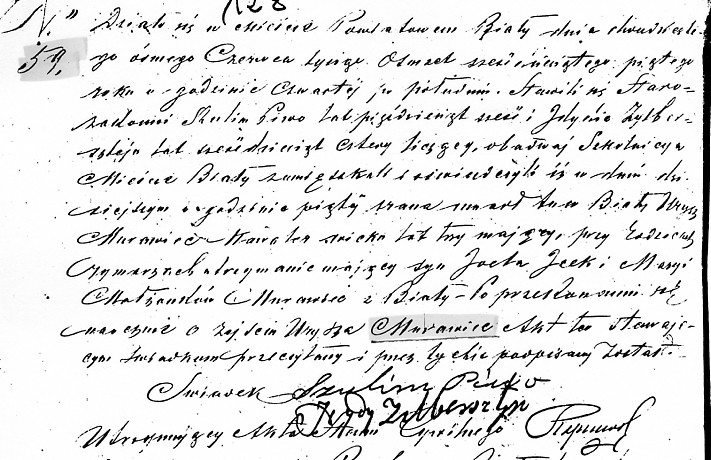 N. 128
59. Działo się w Mieście Powiatowem Biały dnia dwudzieste-
go ósmego Czerwca tysiąc Osmset sześćdziesiątego piątego
roku o godzinie czwartej po południu. Stawili się Staro-
zakonni Szulim Piwo lat pięćdziesiąt sześć i Zylber-
sztejn lat sześćdziesiąt cztery liczący, obadwaj Szkolnicy w
Mieście Biały zamieszkali i oświadczyli iż w dniu dzi-
siejszym o godzinie piąty zrana umarł tu w Biały
Murawiec Kawaler wieku lat trzy mający, przy Rodzicach
utrzymanie mający syn Jocka i
Małżonków Murawiec z Biały Po przekonaniu się
naocznie o zejściu Murawiec Akt ten stawają-
cym świadkom przeczytany i przez tychże podpisany został.
Świadek Szulim Piwo
Zylbersztejn
Utrzymujący Akta Stanu Cywilnego